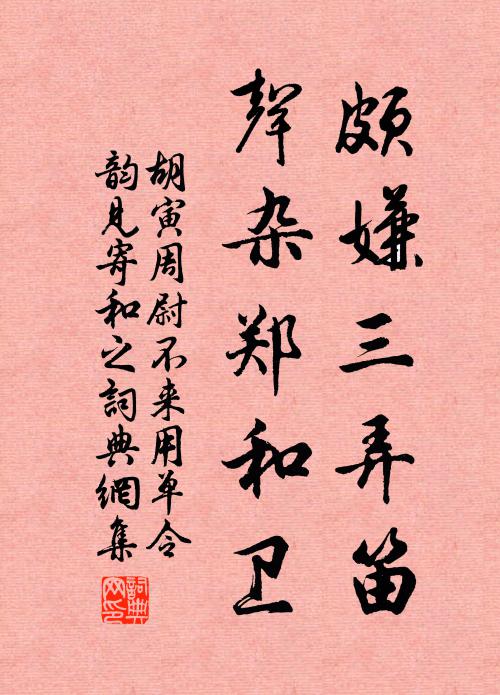 颇嫌三弄笛
声杂郑和卫
胡寅周尉不来用单令
韵见寄和之詞典網集
詞典
网印